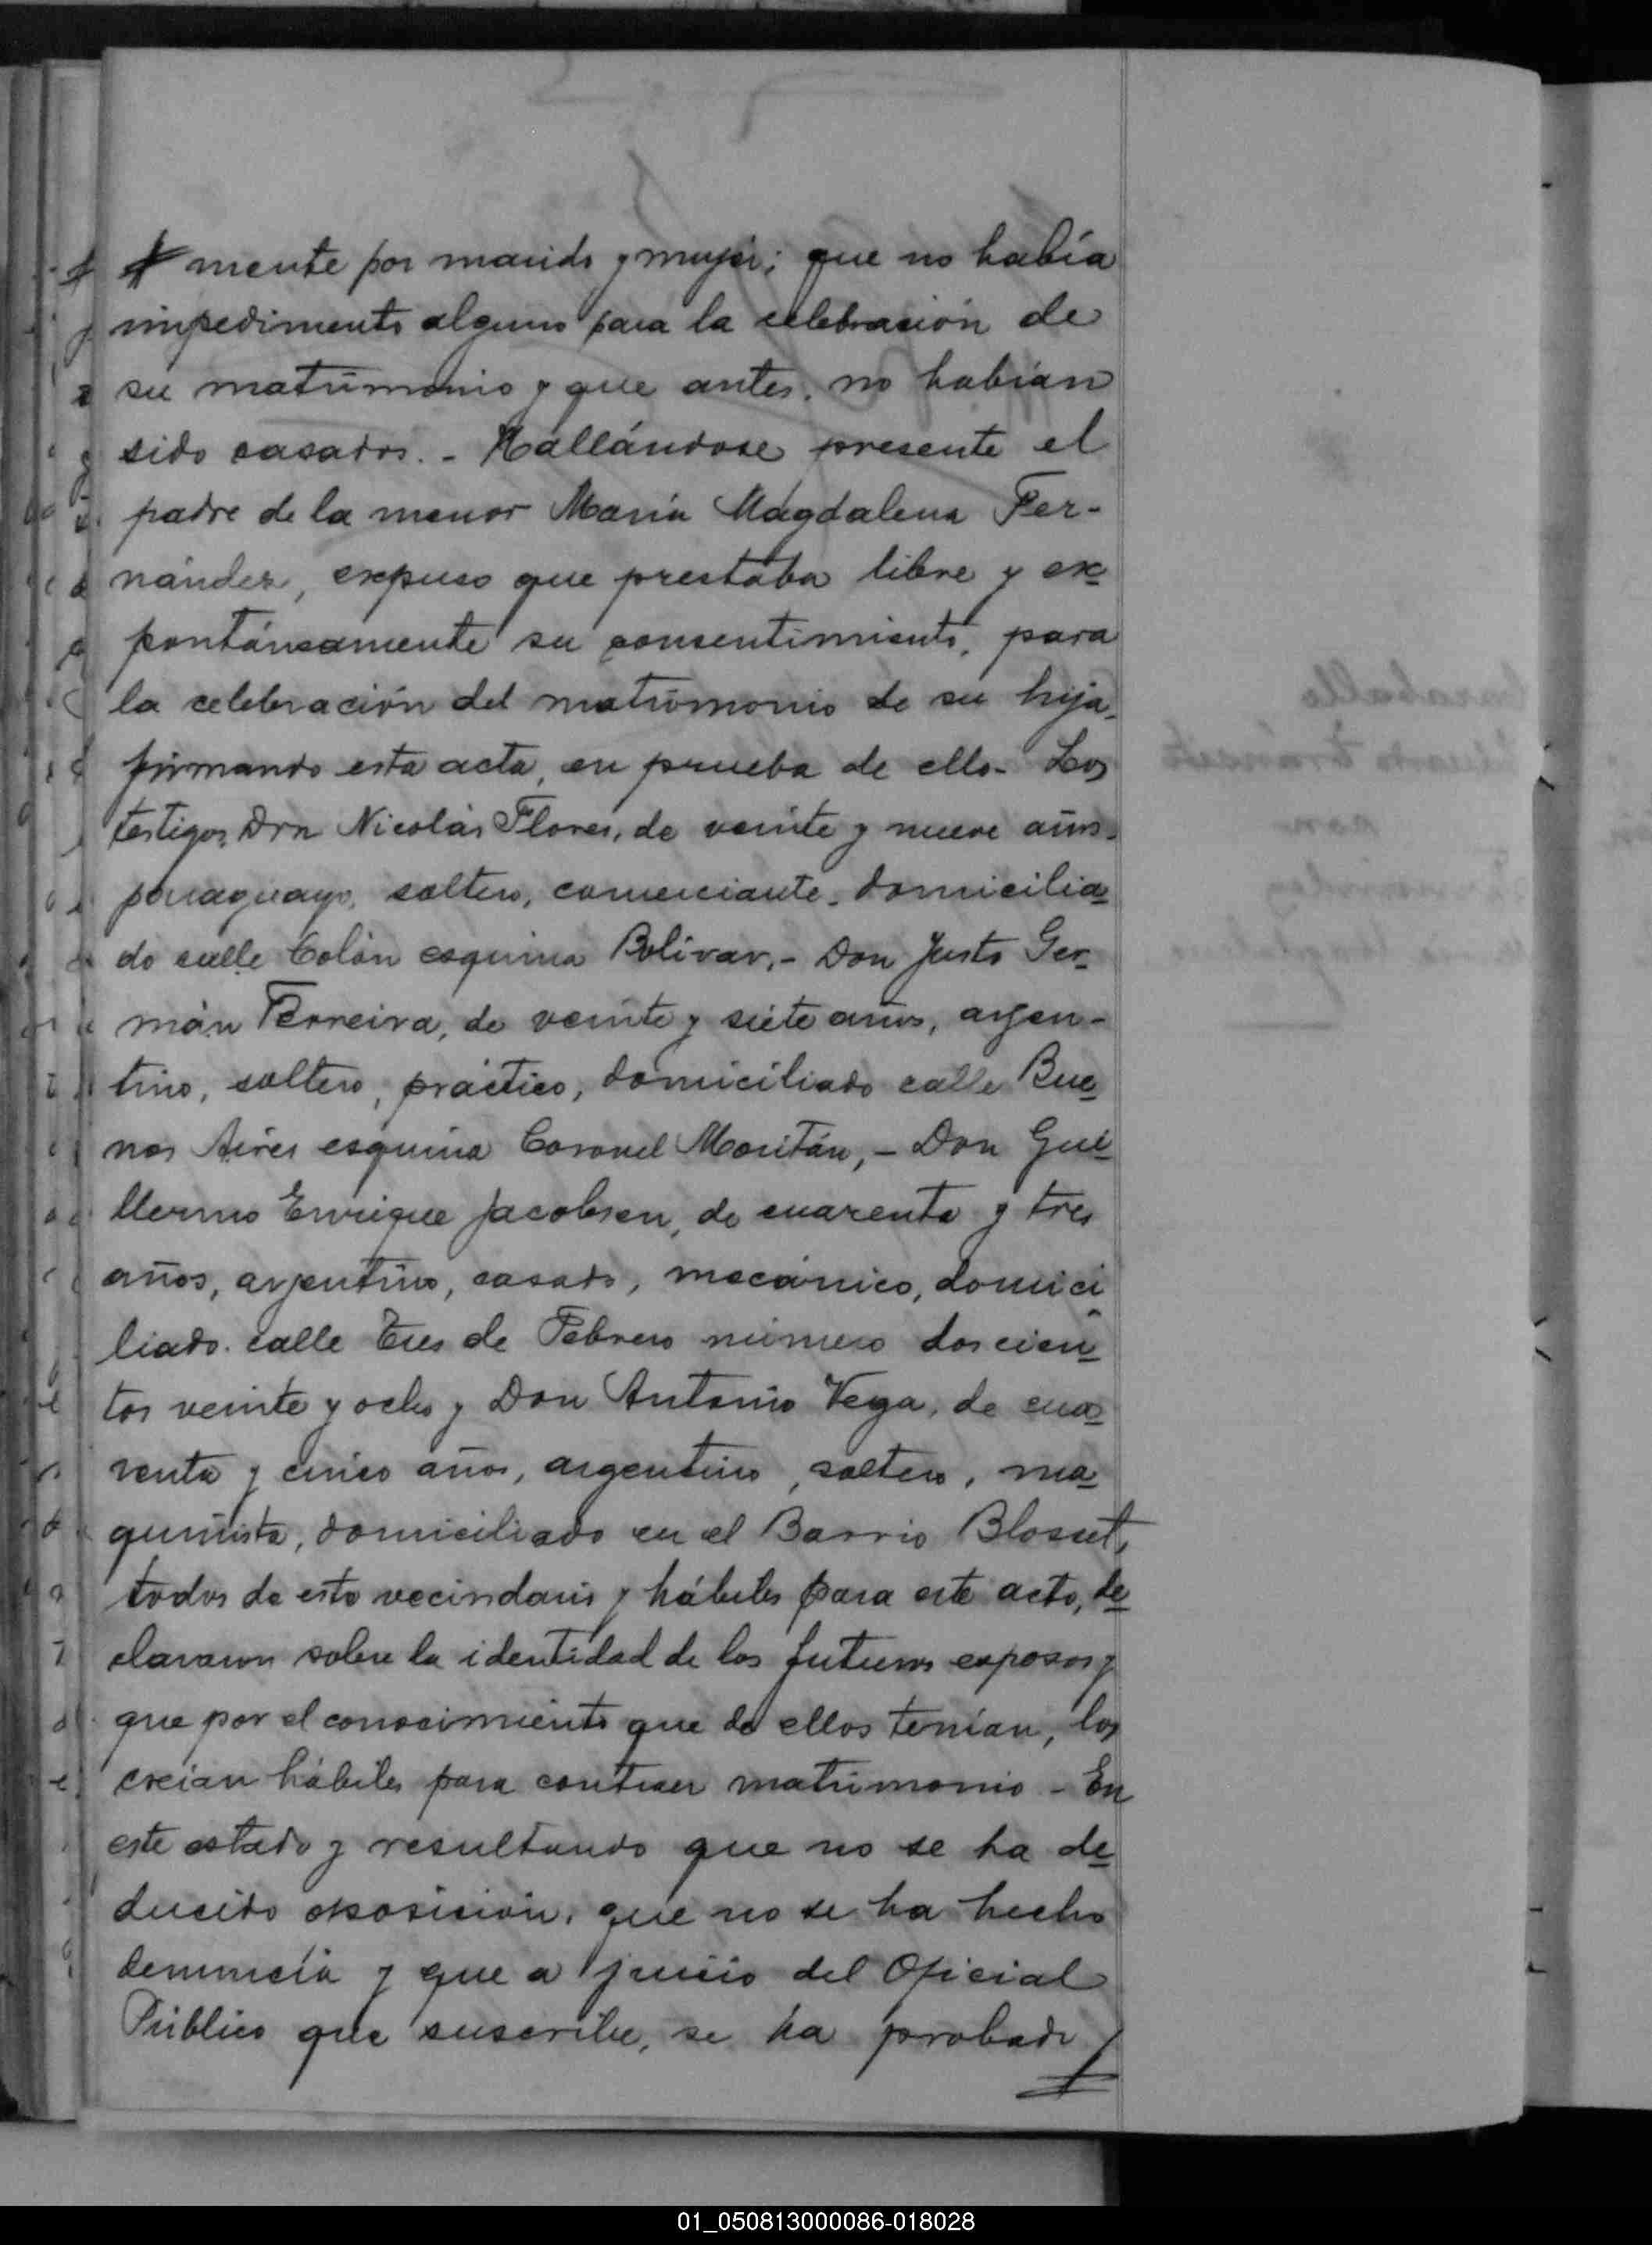 mente por marido y mujer; que no había
impedimento alguno para la celebración de
su matrimonio y que antes, no habían
sido casados. - Hallándose presente el
padre de la menor María Magdalena Fer-
nández, expuso que prestaba libre y ex-
pontáneamente su consentimiento, para
la celebración del matrimonio de su hija,
firmando esta acta, en prueba de ello - Los
testigos, Don Nicolás Flores, de veinte y nueve años,
paraguayo, soltero, comerciante, domicilia-
do calle Colón esquina Bolivar, - Don Justo Ger-
mán Ferreira, de veinte y siete años, argen-
tino, soltero, práctico, domiciliado calle Bue-
nos Aires esquina Coronel Moritán, - Don Gui-
llermo Enrique Jacobsen, de cuarenta y tres
años, argentino, casado, mecánico, domici-
liado calle Tres de Febrero número doscien-
tos veinte y ocho y Don Antonio Vega, de cua-
renta y cinco años, argentino, soltero, ma-
quinista, domiciliado en el Barrio Blosset,
todos de esta vecindario y hábiles para este acto, de-
clararon sobre la identidad de los futuros esposos y
que por el conocimiento que de ellos tenían, los
creían hábiles para contraer matrimonio - En
este estado y resultando que no se ha de-
ducido oposición, que no se ha hecho
denuncia y que a juicio del Oficial
Público que suscribe, se ha probado
01_050813000086-018028